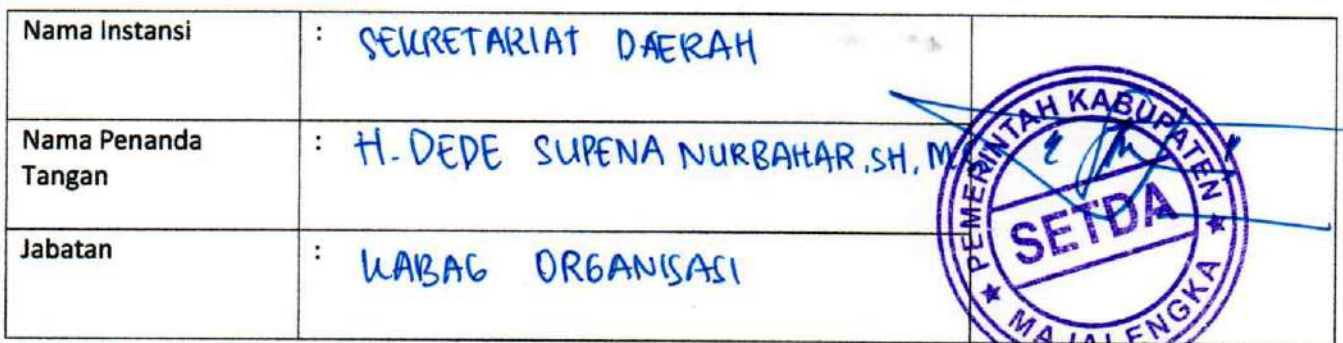 Nama Instansi : SEKRETARIAT DAERAH
Nama Penanda : H. DEDE SUPENA NURBAHAR, SH, M
Tangan
Jabatan : KABAG ORGANISASI
PEMERINTAH KABUPATEN
SETDA
MAJALENGKA